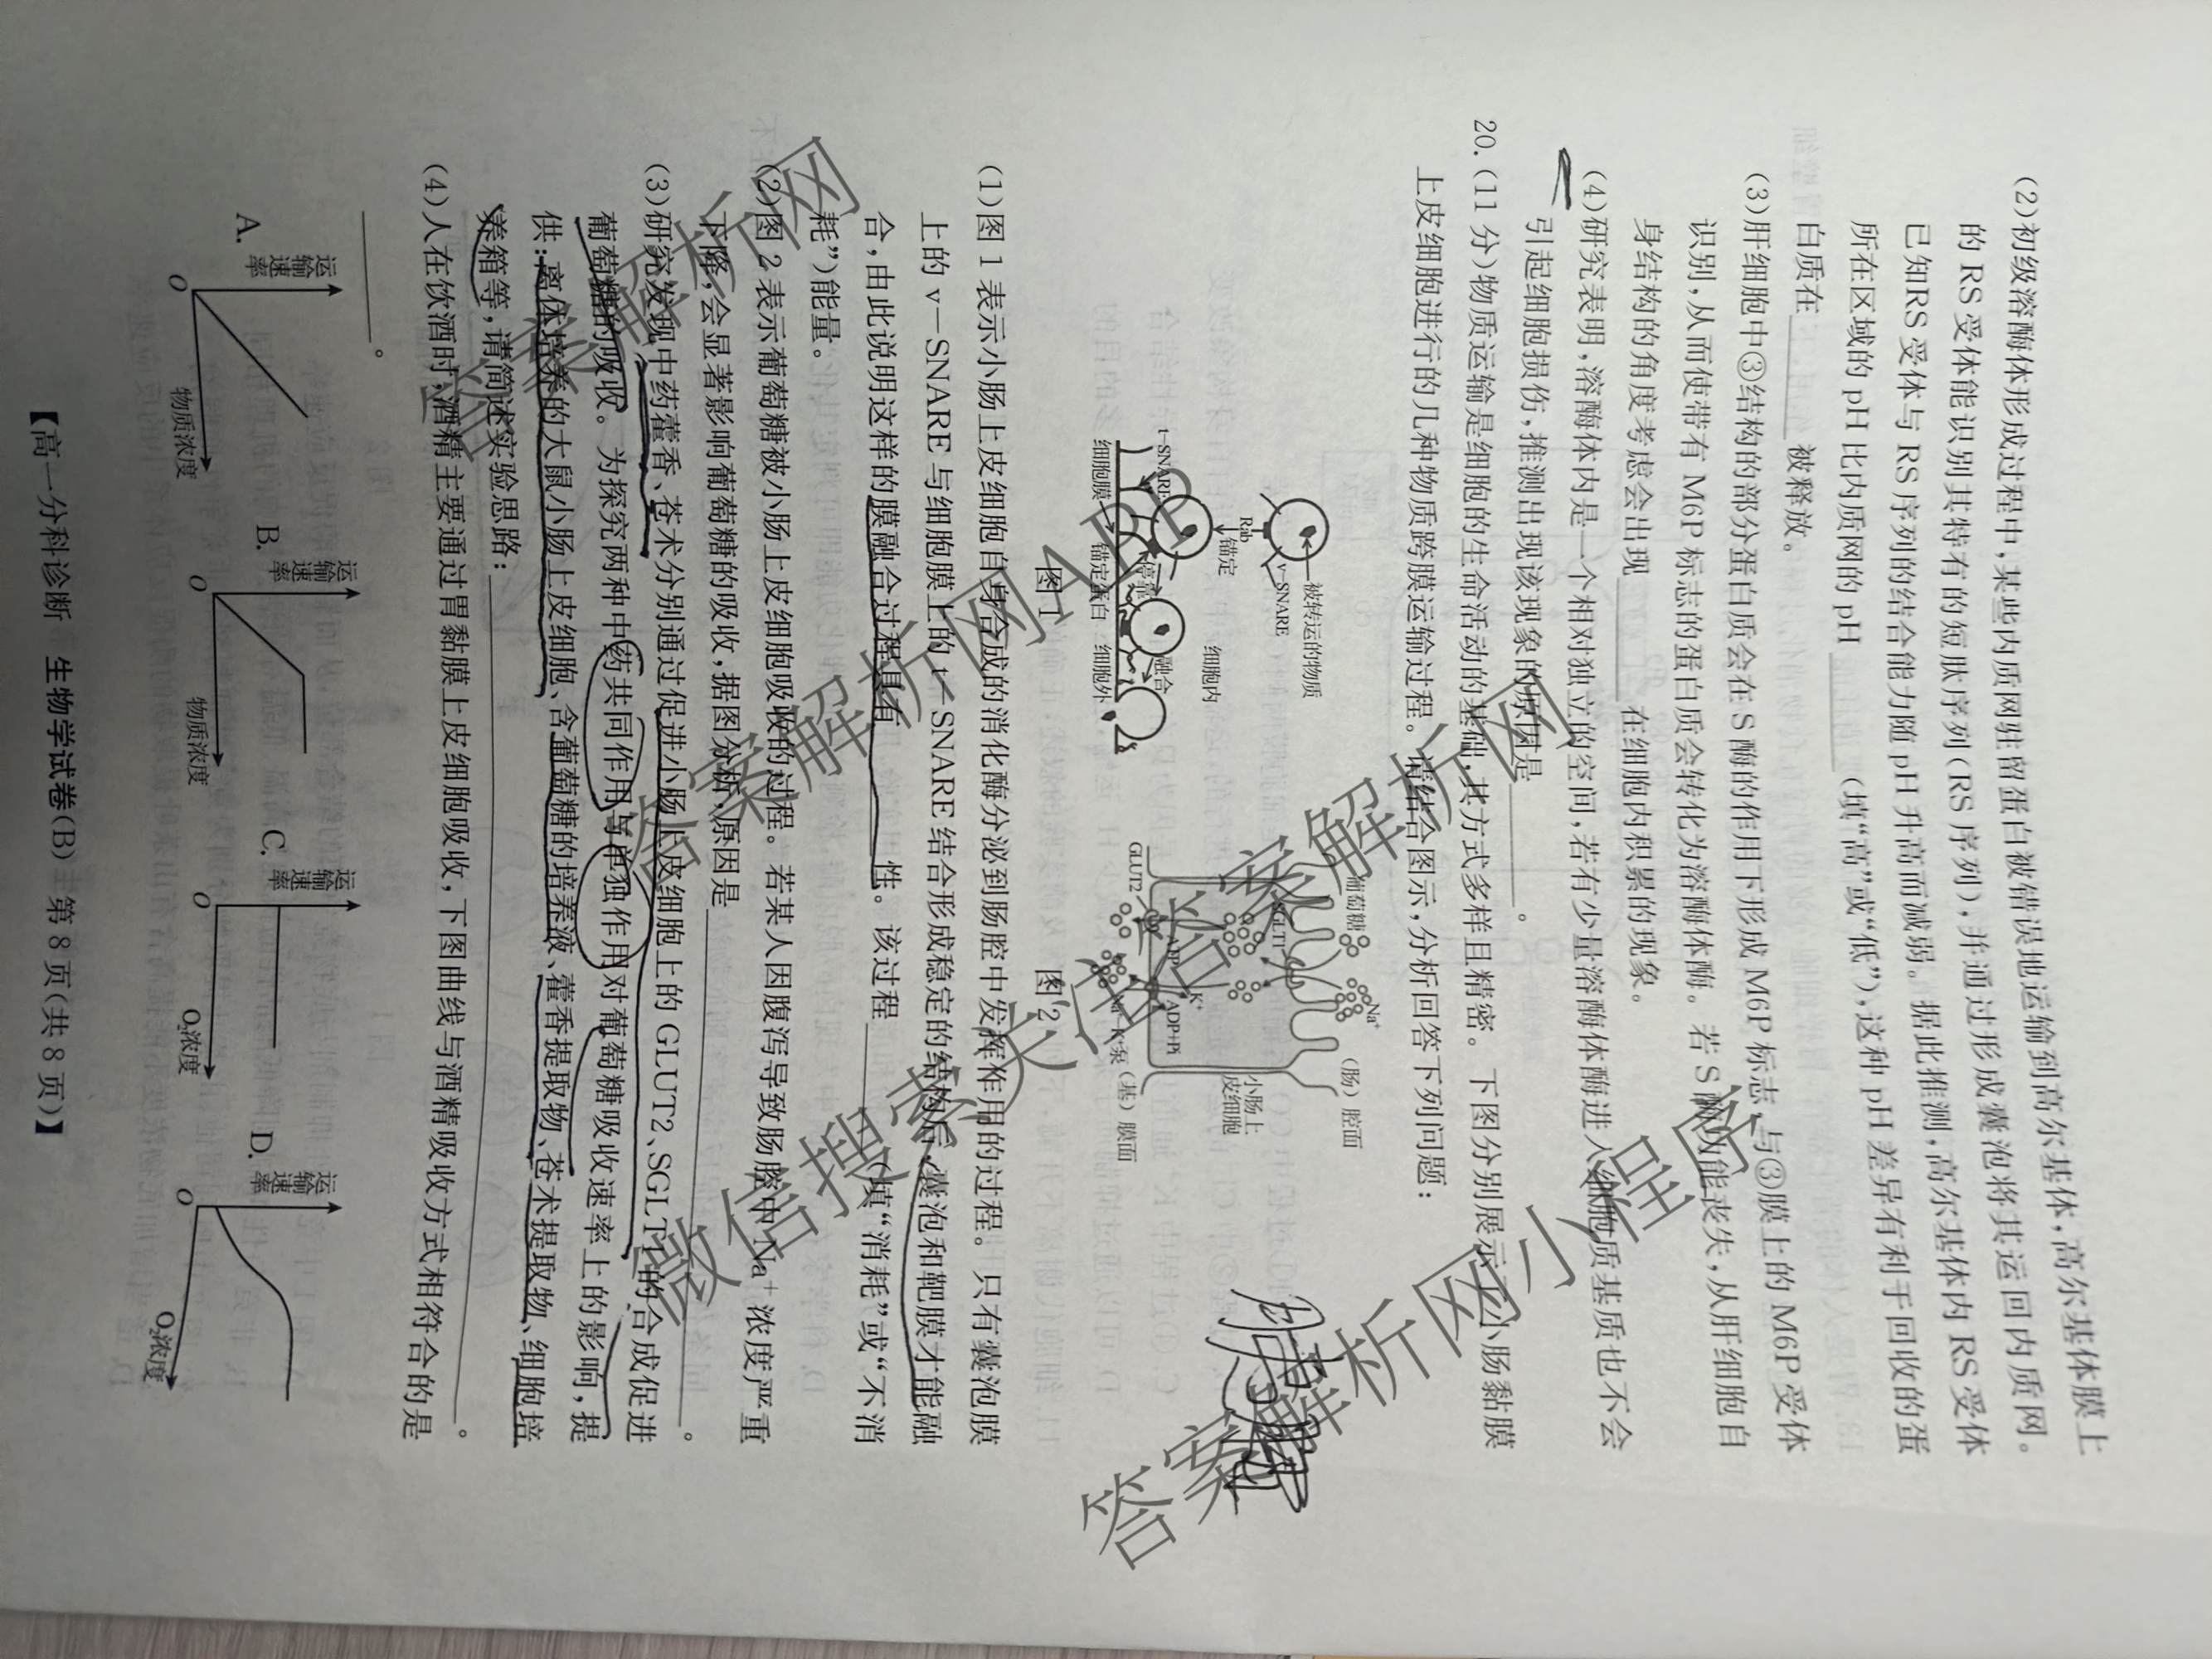 (2)初级溶酶体形成过程中,某些内质网驻留蛋白被错误地运输到高尔基体,高尔基体膜上
的RS受体能识别其特有的短肽序列(RS序列),并通过形成囊泡将其运回内质网。
已知RS受体与RS序列的结合能力随pH升高而减弱。据此推测,高尔基体内RS受体
所在区域的pH比内质网的pH________(填“高”或“低”),这种pH差异有利于回收的蛋
白质在________被释放。
(3)肝细胞中③结构的部分蛋白质会在S酶的作用下形成M6P标志,与③膜上的M6P受体
识别,从而使带有M6P标志的蛋白质会转化为溶酶体酶。若S酶功能丧失,从肝细胞自
身结构的角度考虑会出现________在细胞内积累的现象。
(4)研究表明,溶酶体内是一个相对独立的空间,若有少量溶酶体酶进入细胞质基质也不会
引起细胞损伤,推测出现该现象的原因是________。
20.(11分)物质运输是细胞的生命活动的基础,其方式多样且精密。下图分别展示了小肠黏膜
上皮细胞进行的几种物质跨膜运输过程。请结合图示,分析回答下列问题:
被转运的物质
v-SNARE
Rab
锚定
细胞内
t-SNARE
停靠
融合
细胞膜
锚定蛋白
细胞外
图1
葡萄糖
Na⁺
(肠)腔面
SGLT1
小肠上
皮细胞
K⁺
ATP
ADP+Pi
GLUT2
Na⁺-K⁺泵
(基)膜面
图2
(1)图1表示小肠上皮细胞自身合成的消化酶分泌到肠腔中发挥作用的过程。只有囊泡膜
上的v—SNARE与细胞膜上的t—SNARE结合形成稳定的结构后,囊泡和靶膜才能融
合,由此说明这样的膜融合过程具有________性。该过程________(填“消耗”或“不消
耗”)能量。
(2)图2表示葡萄糖被小肠上皮细胞吸收的过程。若某人因腹泻导致肠腔中Na⁺浓度严重
下降,会显著影响葡萄糖的吸收,据图分析,原因是________。
(3)研究发现中药藿香、苍术分别通过促进小肠上皮细胞上的GLUT2、SGLT1的合成促进
葡萄糖的吸收。为探究两种中药共同作用与单独作用对葡萄糖吸收速率上的影响,提
供:离体培养的大鼠小肠上皮细胞、含葡萄糖的培养液、藿香提取物、苍术提取物、细胞培
养箱等,请简述实验思路:________。
(4)人在饮酒时,酒精主要通过胃黏膜上皮细胞吸收,下图曲线与酒精吸收方式相符合的是
________。
A.
运输速率
O
物质浓度
B.
运输速率
O
物质浓度
C.
运输速率
O
O₂浓度
D.
运输速率
O
O₂浓度
【高一分科诊断 生物学试卷(B) 第8页(共8页)】
答案解析网
答案解析网APP
微信搜索关注答案解析网
答案解析网小程序